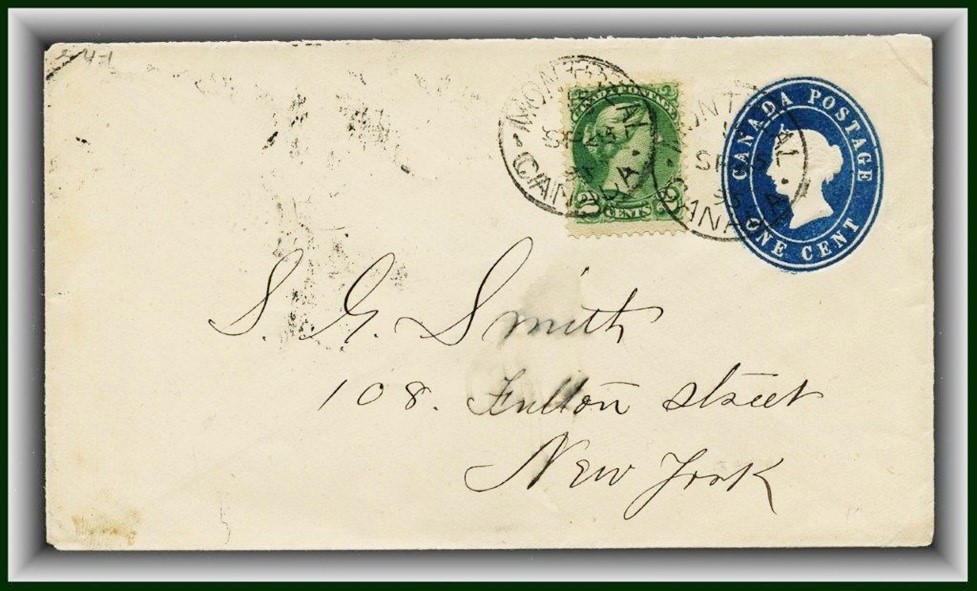 MONTREAL
CANADA
CANADA POSTAGE
2 CENTS
MONTREAL
CANADA
CANADA POSTAGE
ONE CENT
S. G. Smith
108. Fulton street
New York